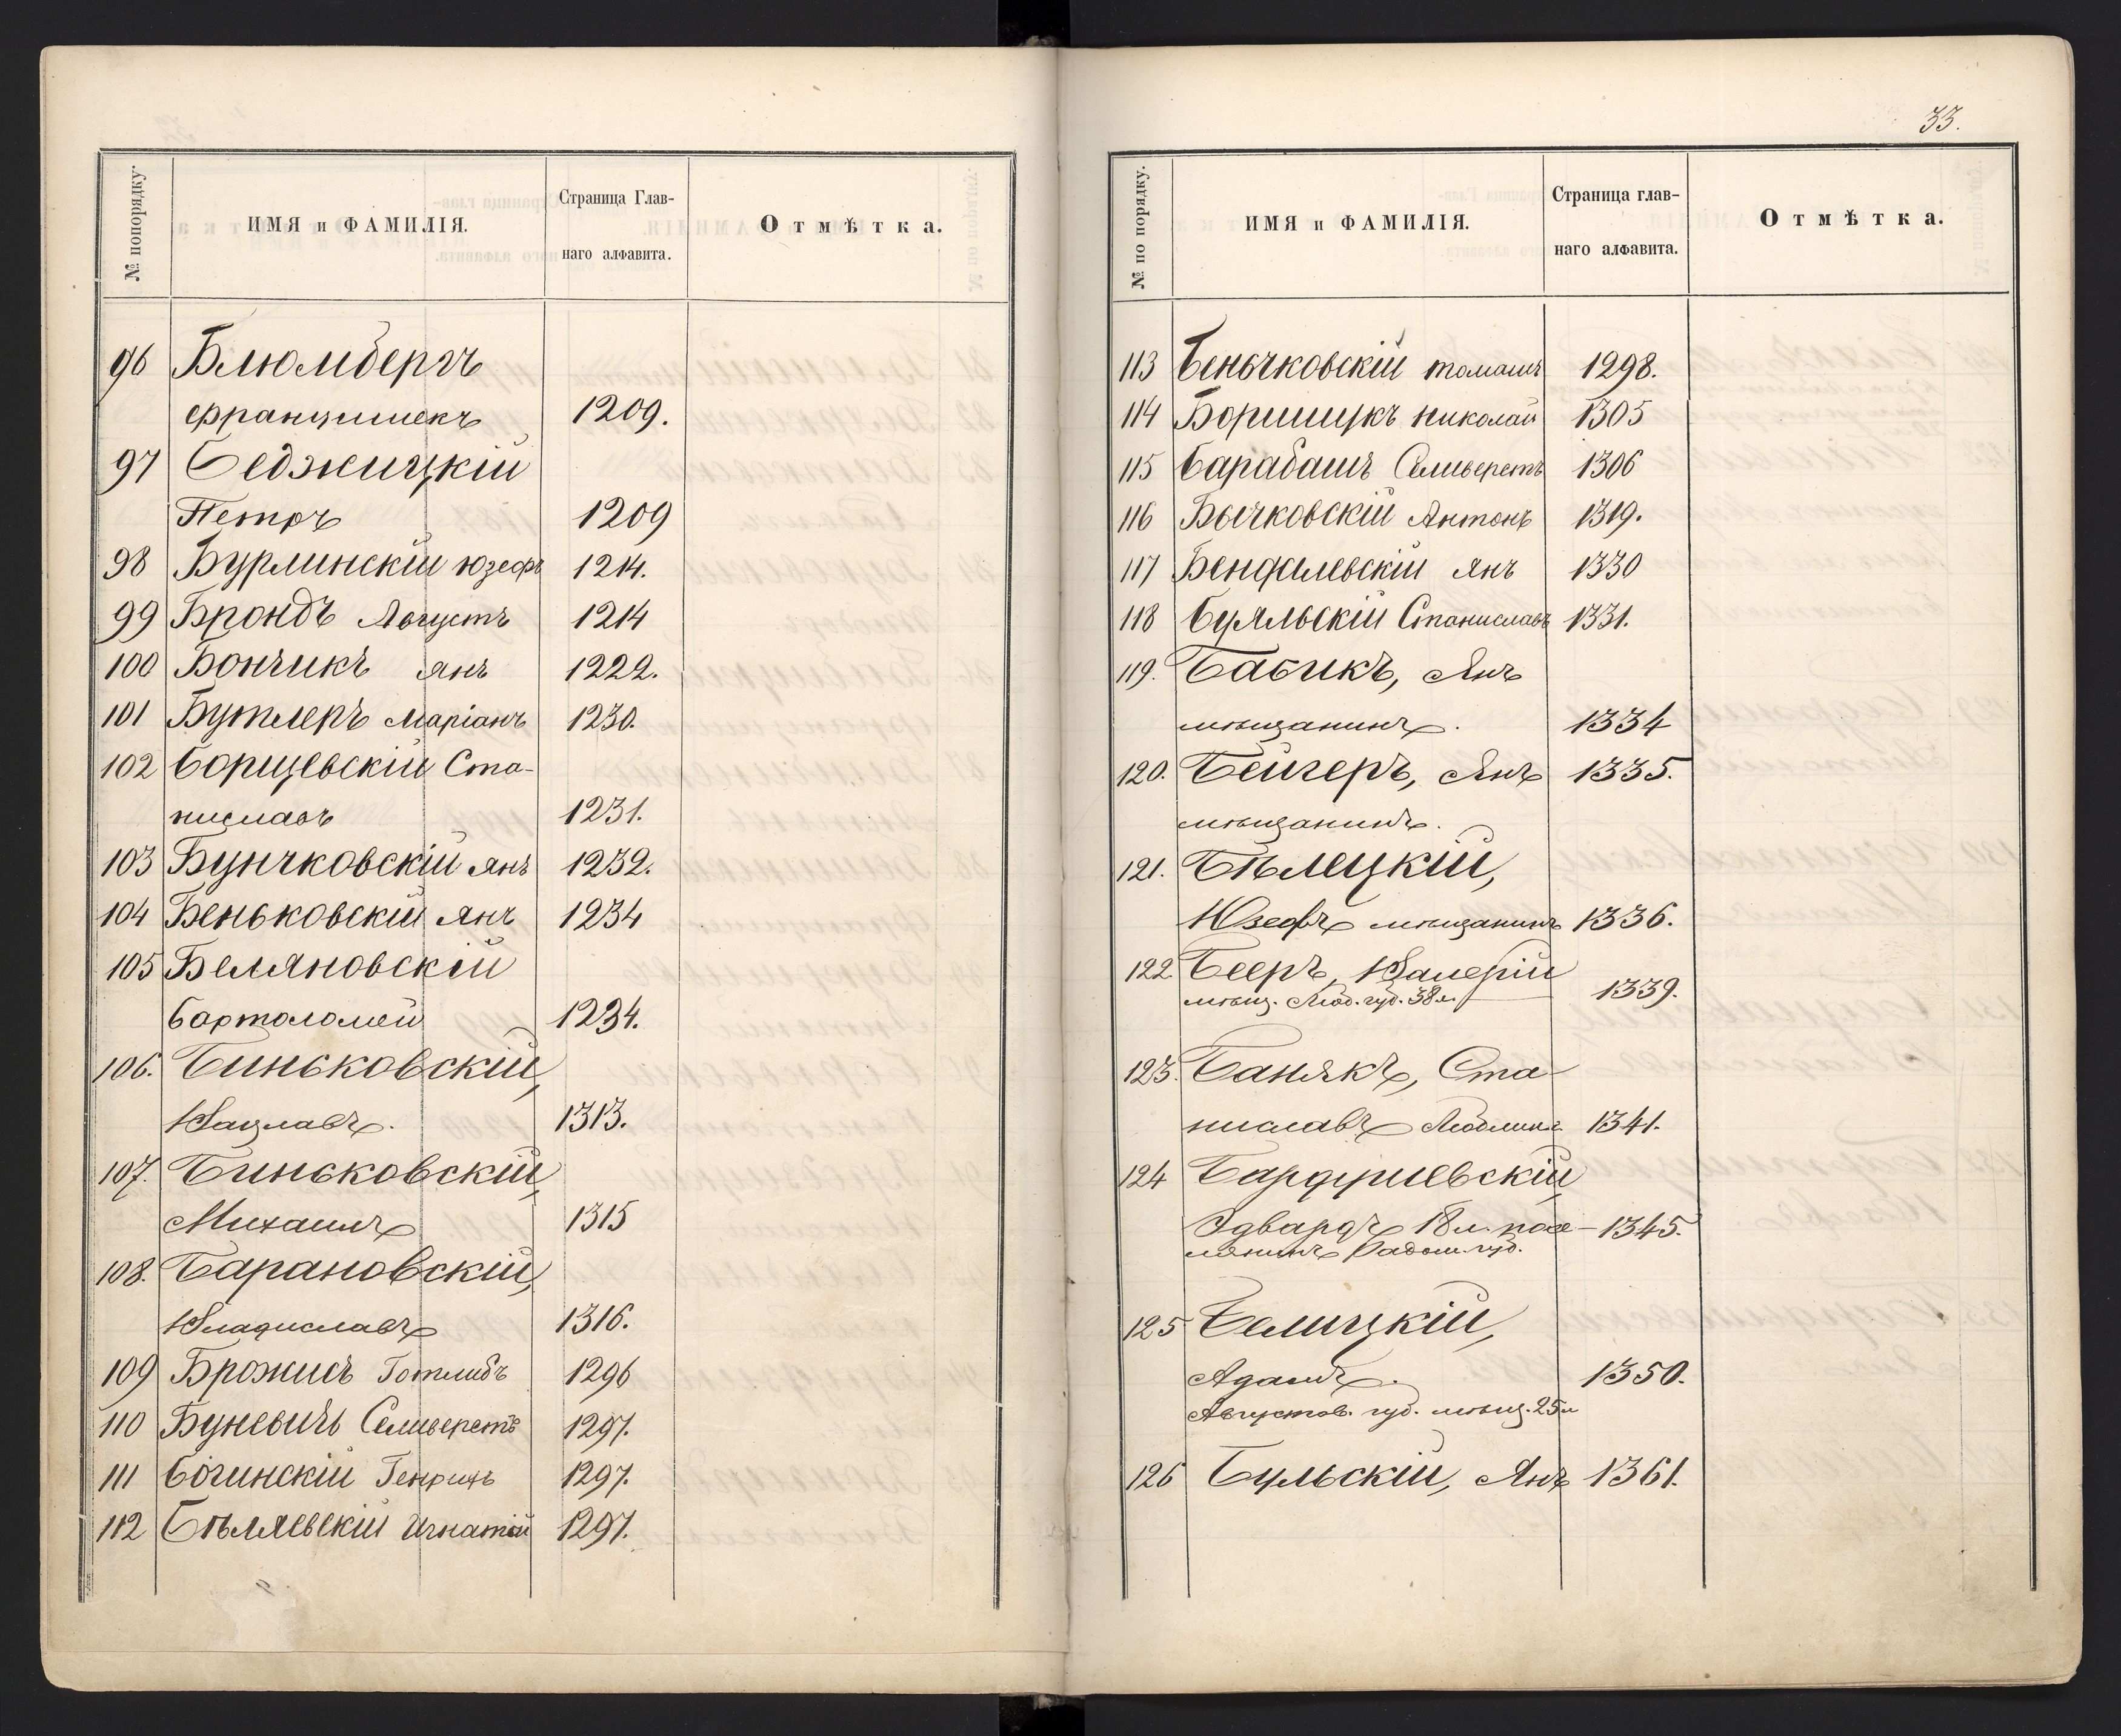 № попорядку.
ИМЯ и ФАМИЛІЯ.
Страница Глав-
наго алфавита.
Отмѣтка.
96 Блюмбергъ
Францишекъ 1209.
97 Беджицкій
Петръ 1209
98 Бурлинскій Юзефъ 1214.
99 Брондъ Августъ 1214
100 Бончикъ Янъ 1222.
101 Бутлеръ Маріанъ 1230.
102 Борщевскій Ста-
ниславъ 1231.
103 Бунчковскій Янъ 1232.
104 Беньковскій Янъ 1234
105 Беляновскій
Бартоломей 1234.
106. Биньковскій,
Вацлавъ. 1313.
107. Биньковскій,
Михаилъ 1315
108. Барановскій,
Владиславъ 1316.
109 Брожисъ Готлибъ 1296
110 Буневичъ Селиверстъ 1297.
111 Богинскій Генрихъ 1297.
112 Бѣляевскій Игнатій 1297.
33.
№ по порядку.
ИМЯ и ФАМИЛІЯ.
Страница глав-
наго алфавита.
Отмѣтка.
113 Беньчковскій Томашъ 1298.
114 Боришукъ Николай 1305
115 Барабашъ Селиверстъ 1306
116 Бычковскій Антонъ 1319.
117 Бендалевскій Янъ 1330
118 Буяльскій Станиславъ 1331.
119. Бабикъ, Янъ
мѣщанинъ. 1334
120. Бейгеръ, Янъ 1335.
мѣщанинъ.
121. Бѣлецкій,
Юзефъ мѣщанинъ 1336.
122 Бееръ, Валерій
мѣщ. Люб. губ. 38 л. 1339.
123. Банякъ, Ста-
ниславъ Люблина 1341.
124 Бардзилевскій
Эдвардъ 18 л. посе- 1345.
лянинъ Радом. губ.
125 Белицкій,
Адамъ. 1350.
Августов. губ. мѣщ. 25 л
126 Бульскій, Янъ 1361.